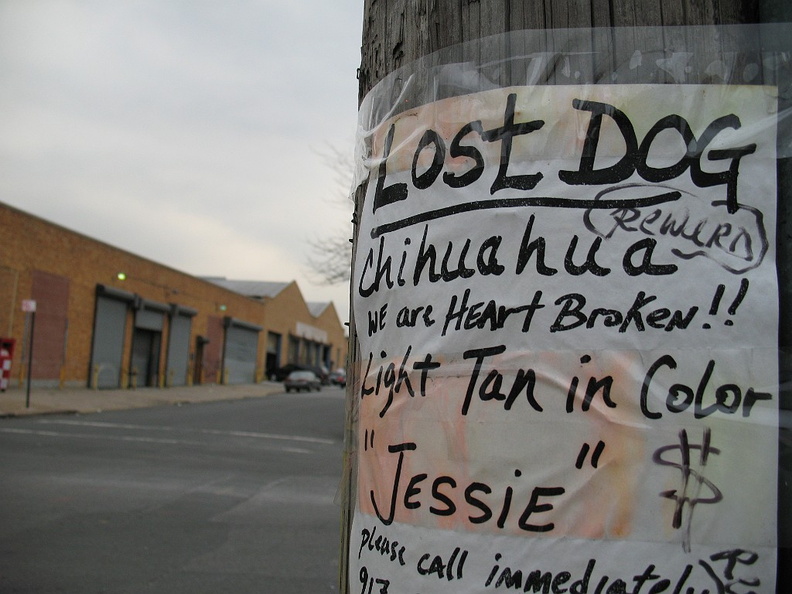 Lost DOG
REWARD
Chihuahua
WE are HEART BroKen!!
Light Tan in Color
"JESSiE" $
please call immediately
917